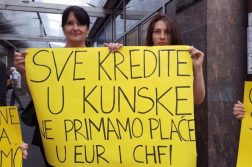 SVE KREDITE
U KUNSKE
NE PRIMAMO PLAČE
U EUR I CHF!
NE
A
MO